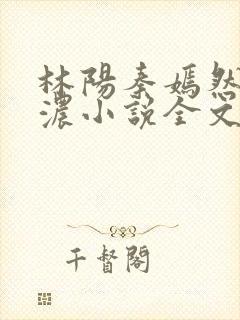 林陽秦嫣然
濃小說全文
千督閣